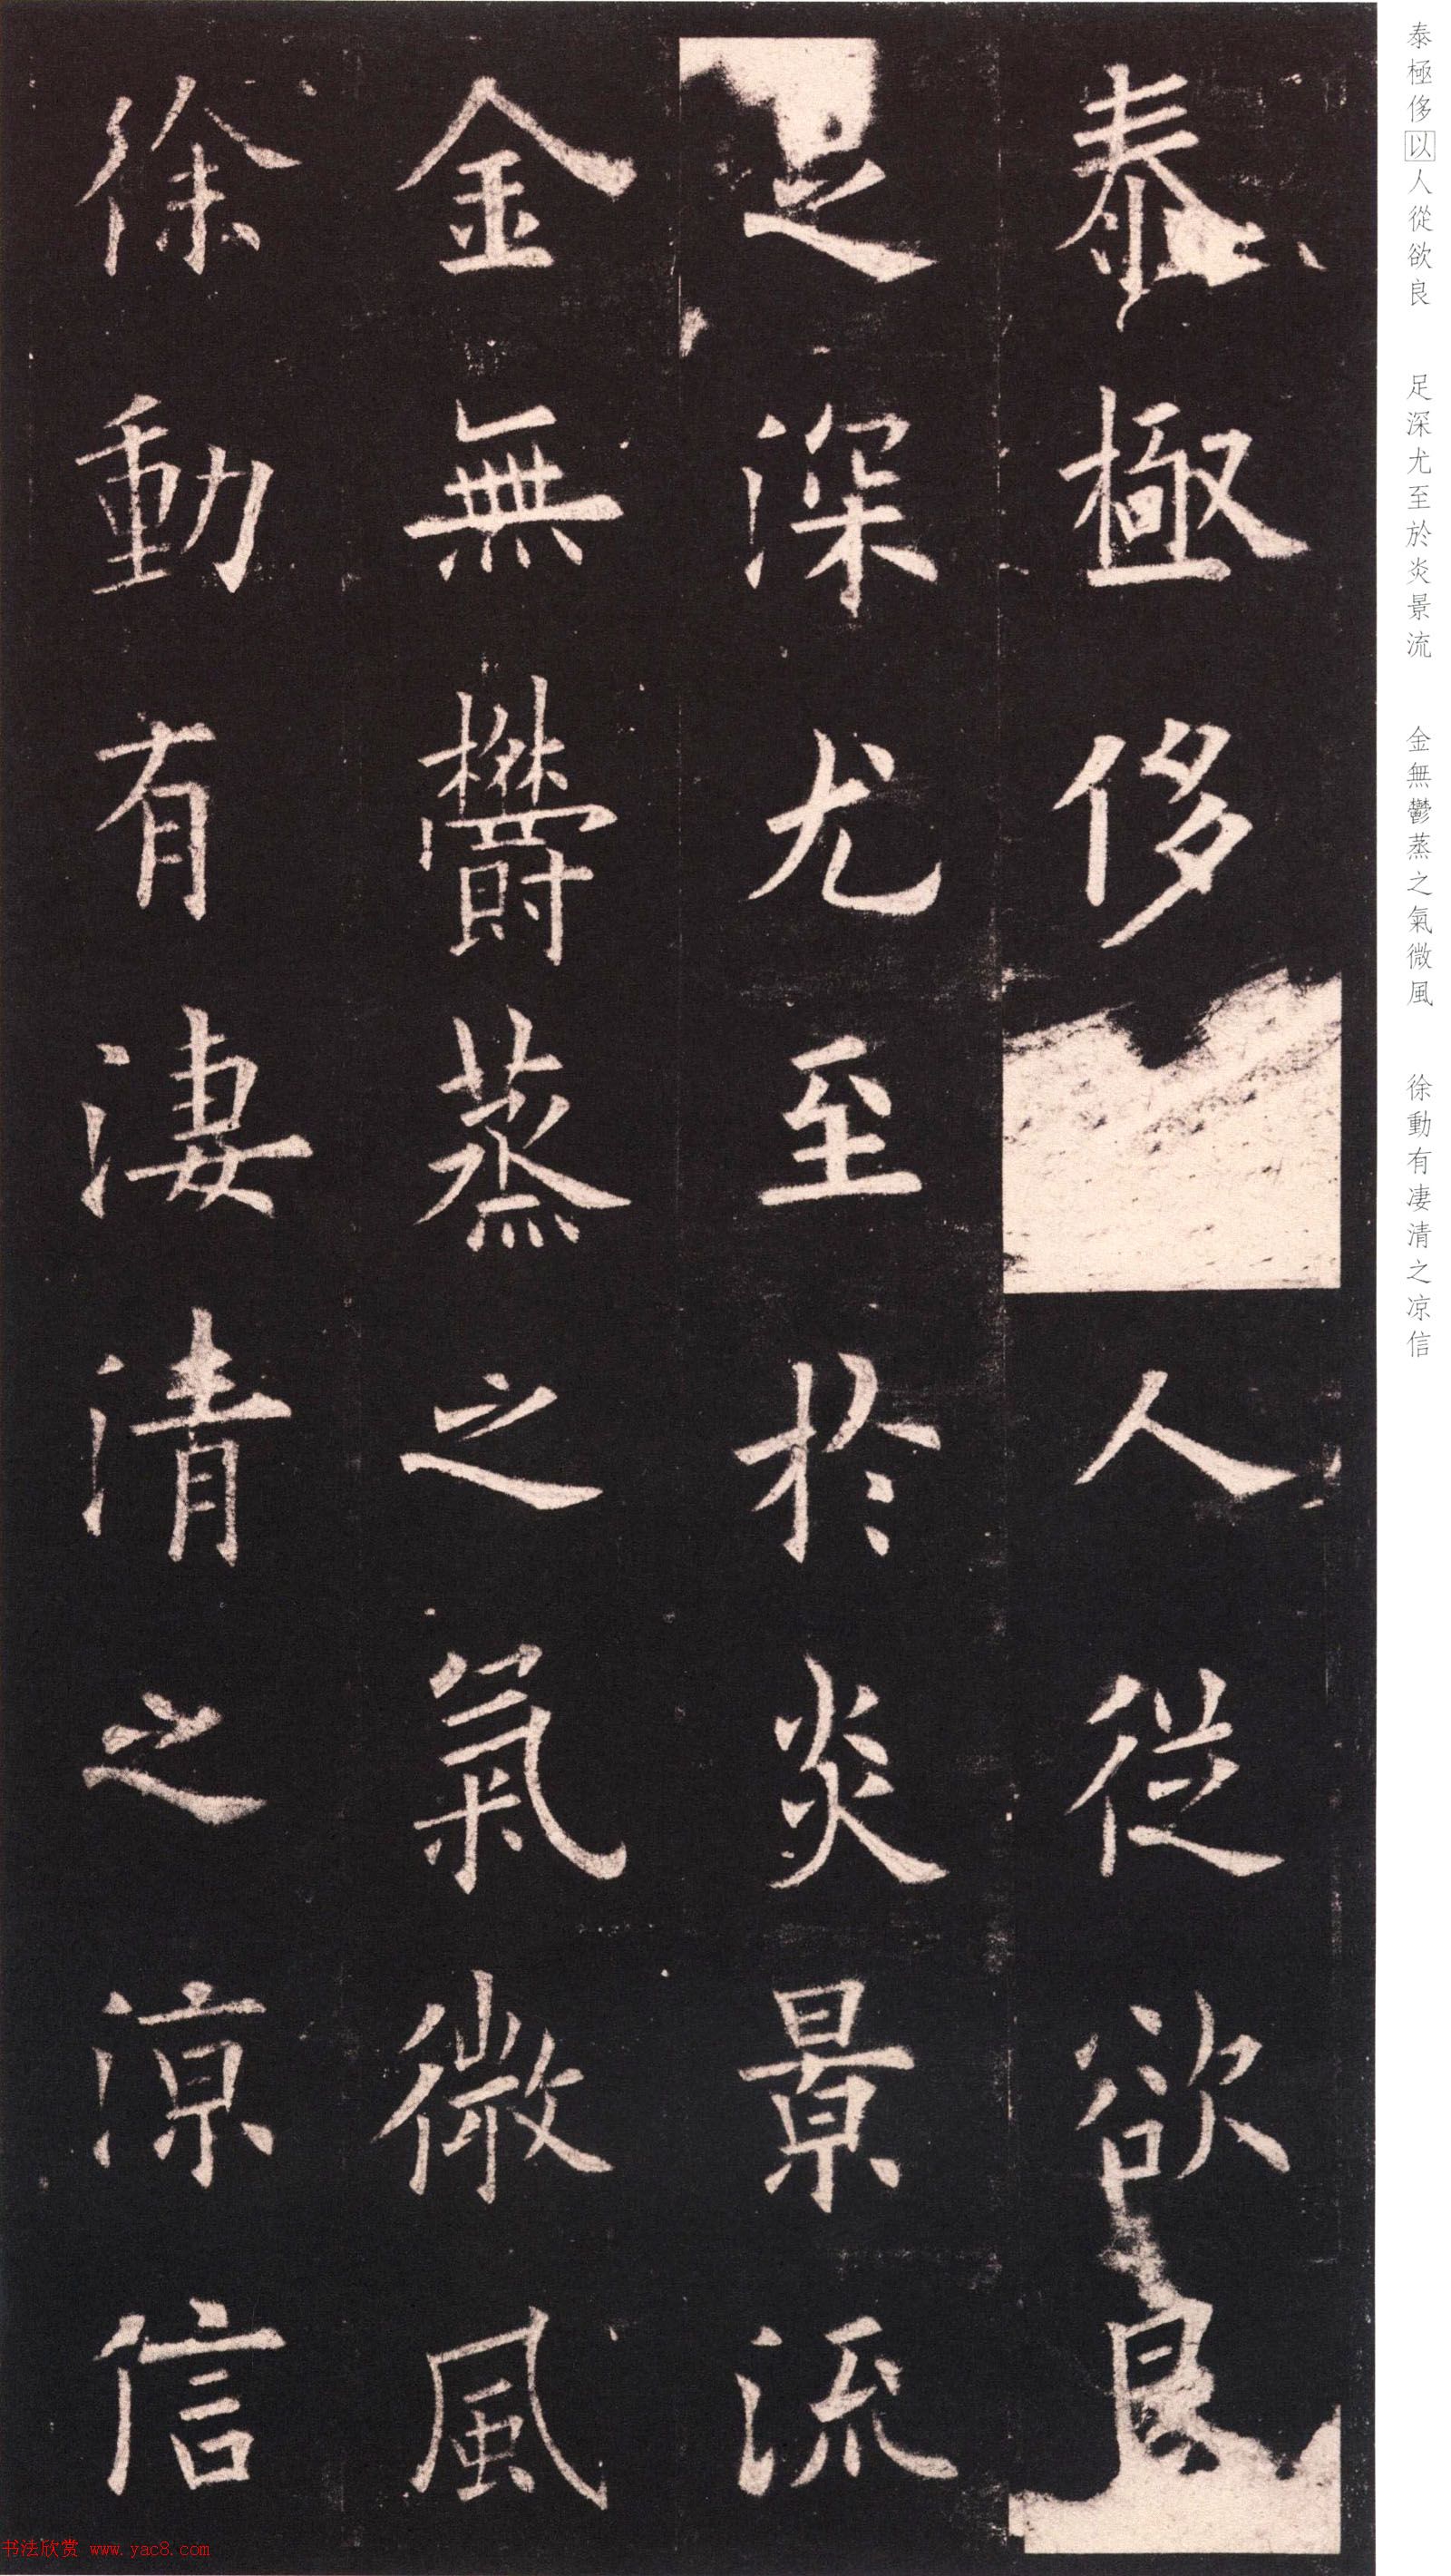 泰極侈人從欲良
足深尤至於炎景流
金無鬱蒸之氣微風
徐動有淒清之涼信
泰極侈以人從欲良 足深尤至於炎景流 金無鬱蒸之氣微風 徐動有凄清之凉信
书法欣赏 www.yac8.com